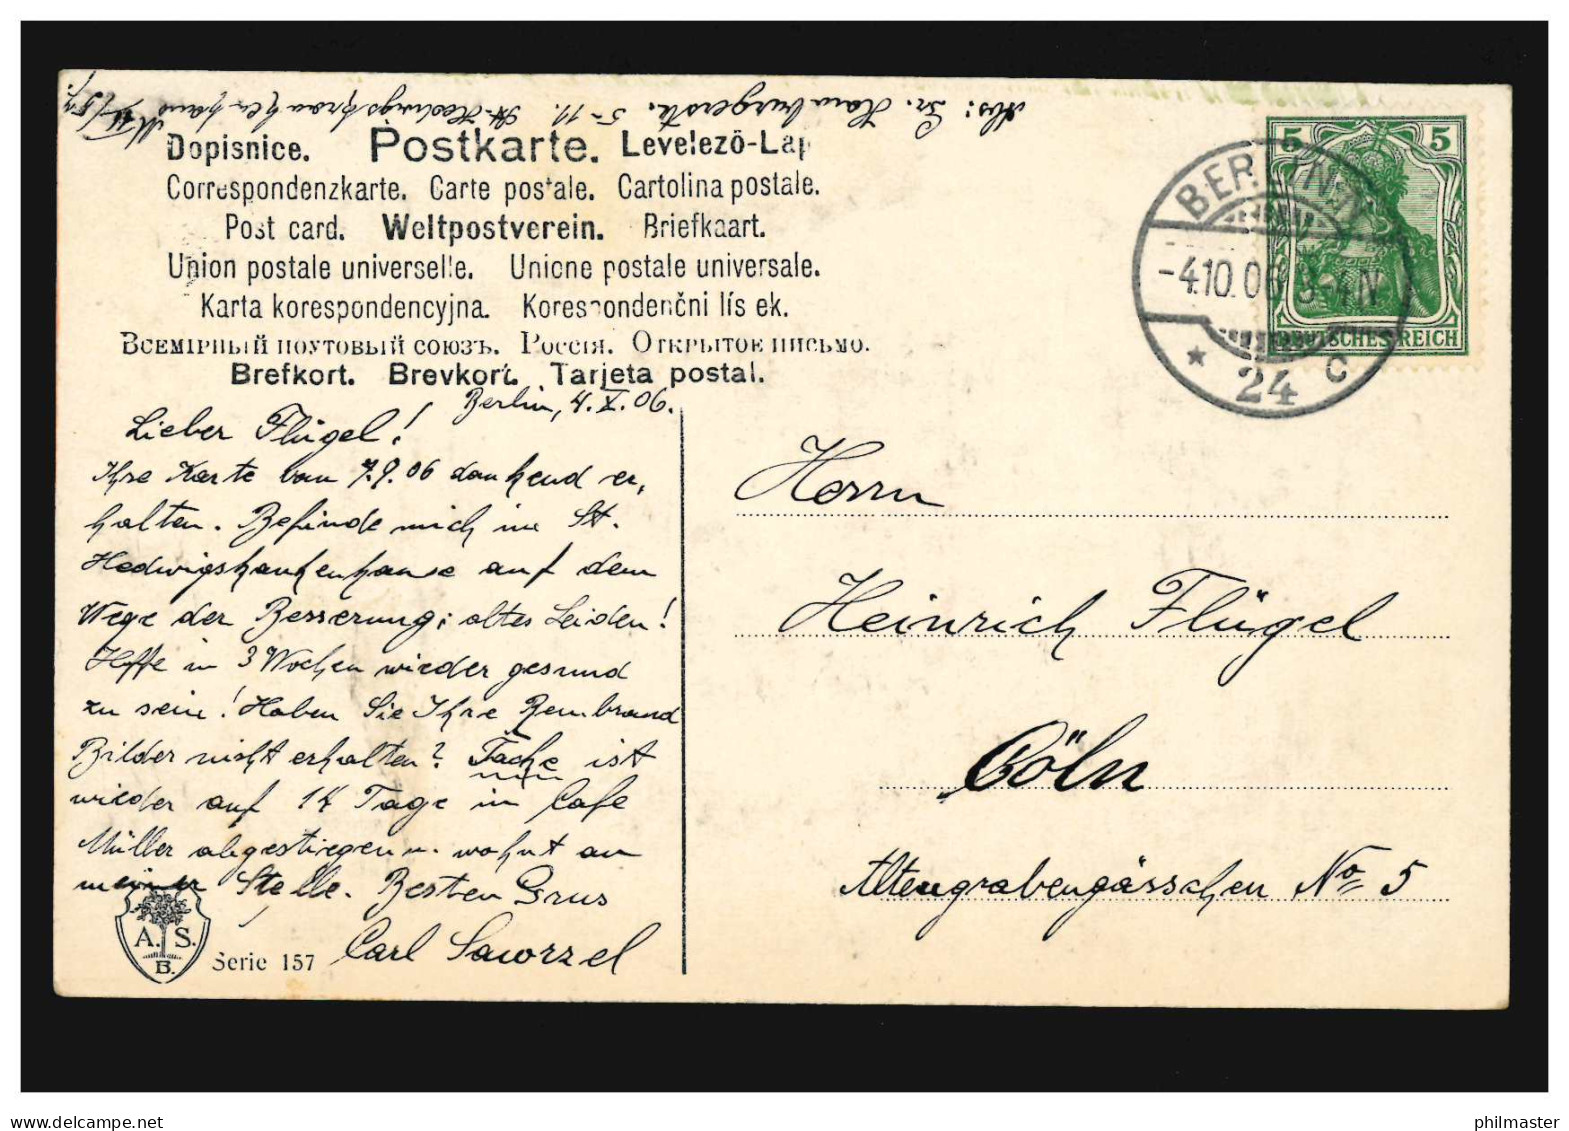 Abs: Gr. Hamburgerstr. 5-11. St. Hedwigskrankenhaus
Dopisnice. Postkarte. Levelező-Lap
Correspondenzkarte. Carte postale. Cartolina postale.
Post card. Weltpostverein. Briefkaart.
Union postale universelle. Unione postale universale.
Karta korespondencyjna. Korespondenční lístek.
Всемірный почтовый союзъ. Россія. Открытое письмо.
Brefkort. Brevkort. Tarjeta postal.
5 5
DEUTSCHES REICH
BERLIN N.
-4.10.06 3-4N
* 24 c
Berlin, 4. X. 06.
Lieber Flügel!
Ihre Karte vom 7.9.06 dankend er,
halten. Befinde mich im St.
Hedwigskankenhause auf dem
Wege der Besserung; altes Leiden!
Hoffe in 3 Wochen wieder gesund
zu sein! Haben Sie Ihre Rembrand
Bilder nicht erhalten? Tacke ist
wieder auf 14 Tage in Cafe
Müller abgestiegen u. wohnt an
meiner Stelle. Besten Grus
Carl Saworzel
A. S.
B.
Serie 157
Herrn
Heinrich Flügel
Cöln
Altengrabengässchen No 5
philmaster